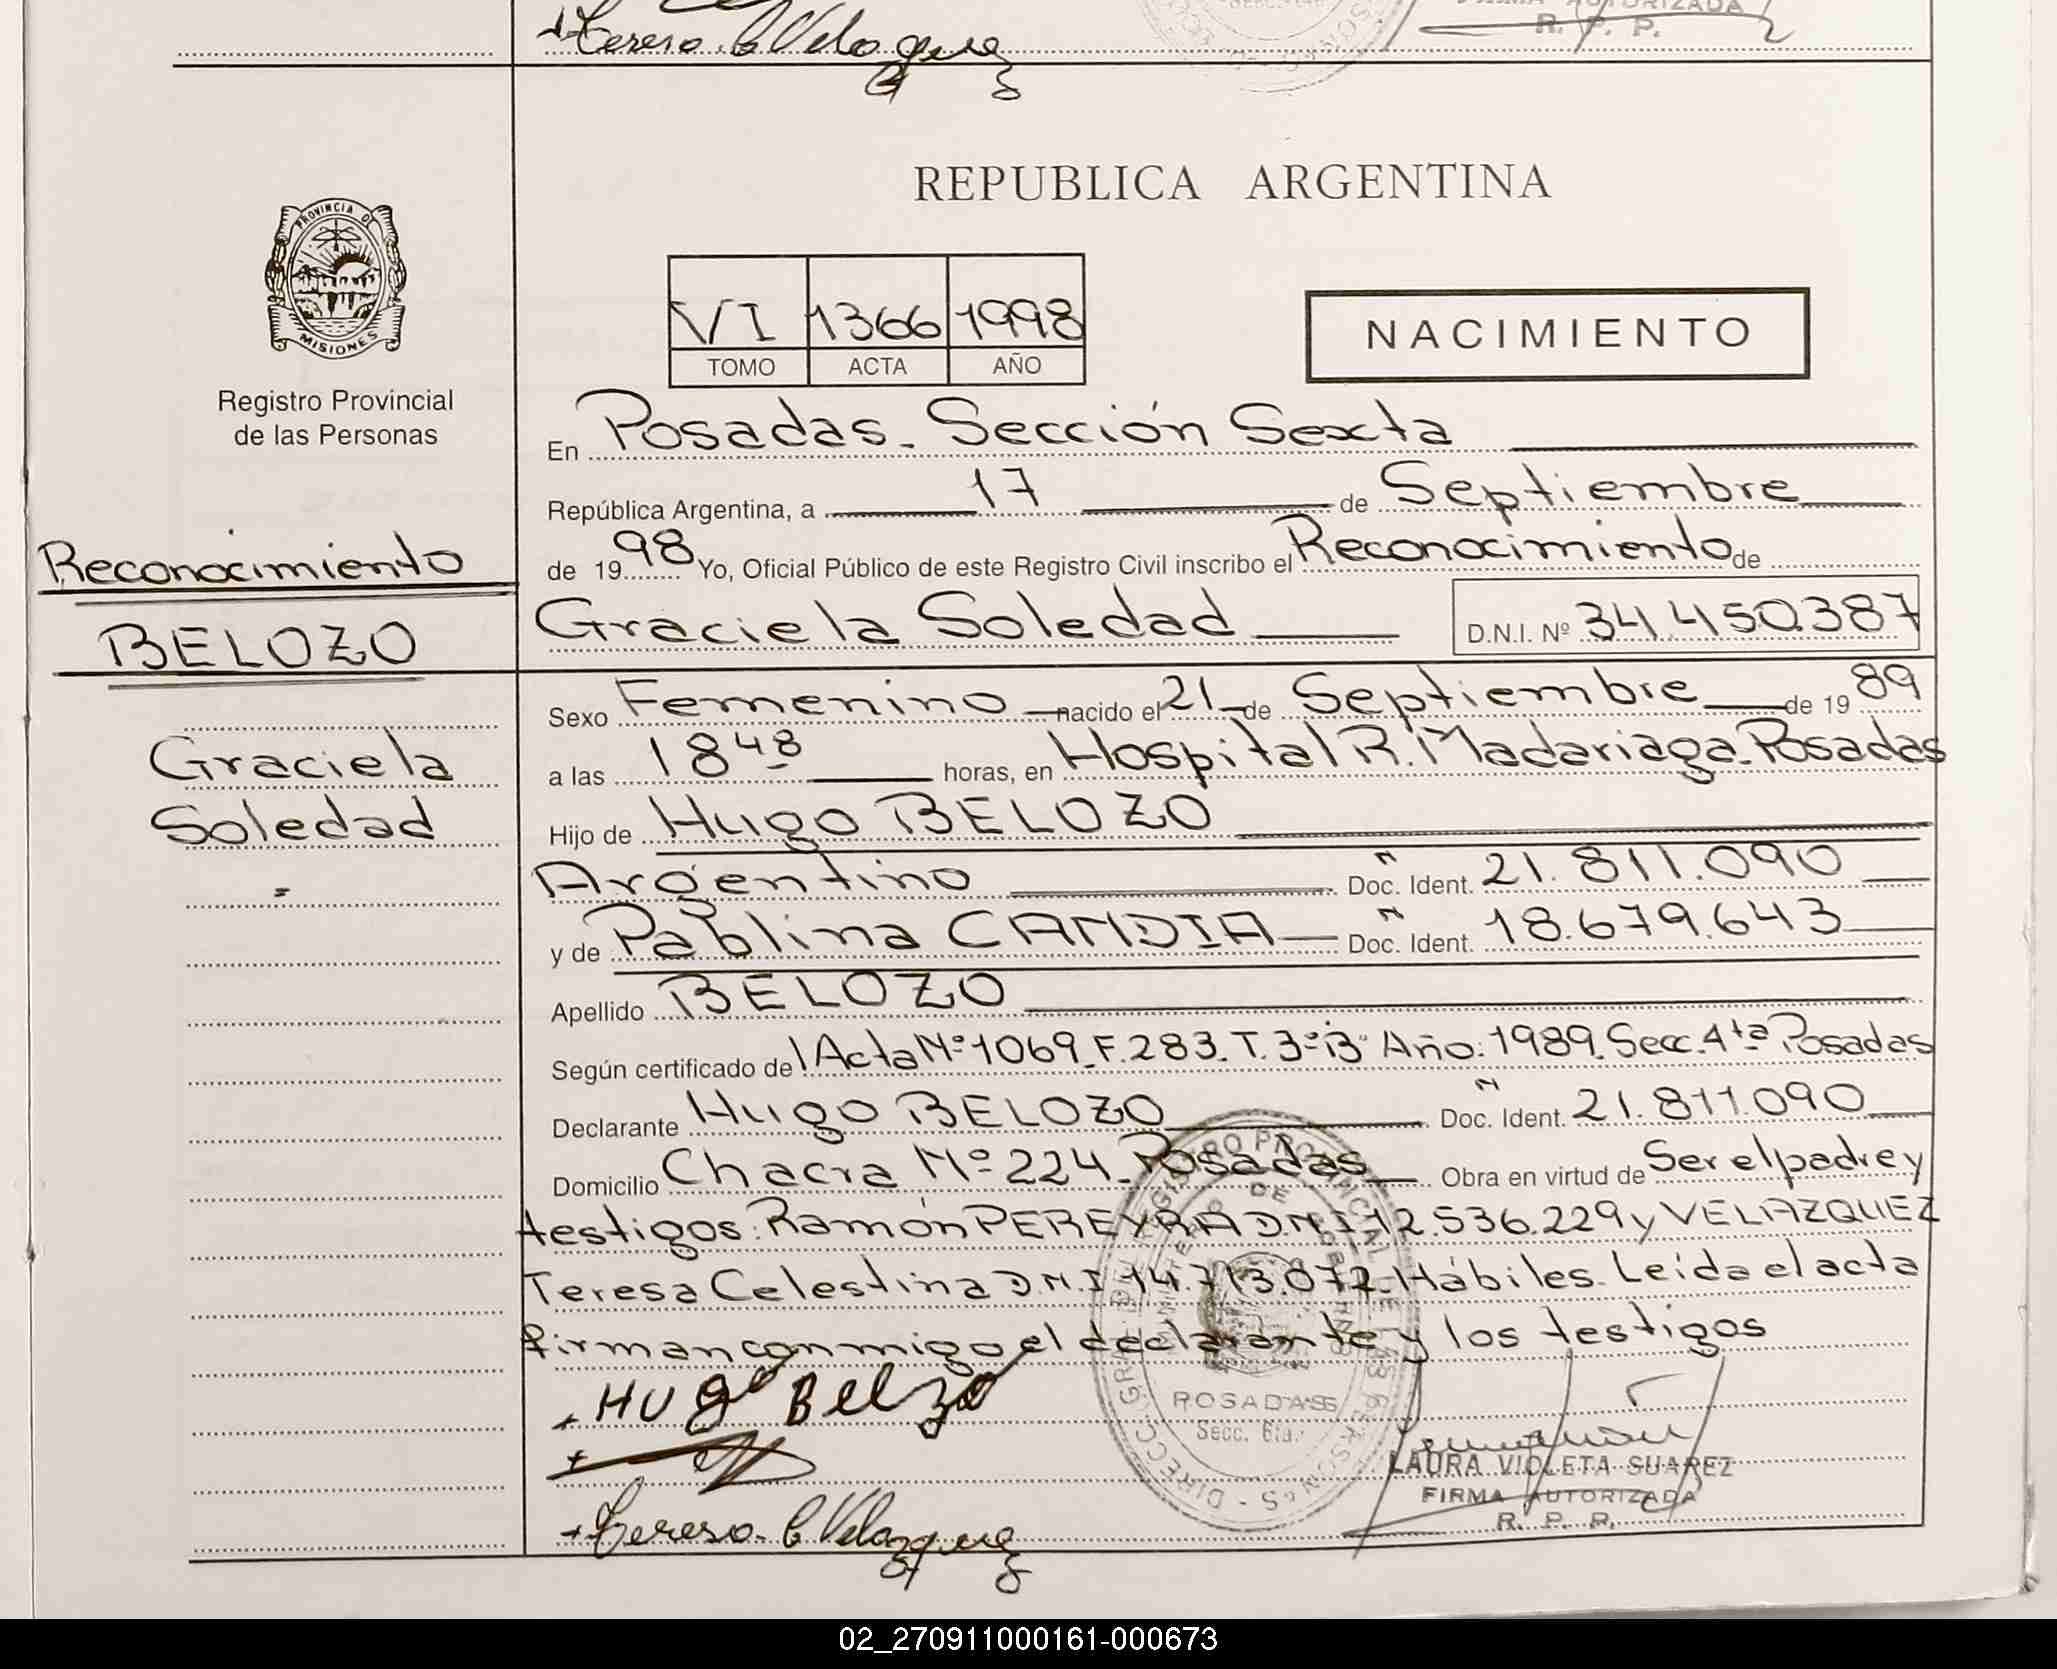 Teresa C Velazquez
AUTORIZADA
R. P. P.
PROVINCIA DE
MISIONES
Registro Provincial
de las Personas
REPUBLICA ARGENTINA
VI 1366 1998
TOMO ACTA AÑO
NACIMIENTO
En Posadas. Sección Sexta
República Argentina, a 17 de Septiembre
de 1998 Yo, Oficial Público de este Registro Civil inscribo el Reconocimiento de
Graciela Soledad D.N.I. Nº 34.450.387
Reconocimiento
BELOZO
Graciela
Soledad
Sexo Femenino nacido el 21 de Septiembre de 1989
a las 18 48 horas, en Hospital R. Madariaga. Posadas
Hijo de Hugo BELOZO
Argentino Doc. Ident. N 21.811.090
y de Pablina CANDIA Doc. Ident. N 18.679.643
Apellido BELOZO
Según certificado de Acta Nº 1069 F. 283. T. 3º"B" Año: 1989. Secc. 4ta Posadas
Declarante Hugo BELOZO Doc. Ident. N 21.811.090
Domicilio Chacra Nº 224. Posadas Obra en virtud de Ser el padre y
testigos: Ramón PEREYRA D.N.I 12.536.229 y VELAZQUEZ
Teresa Celestina D.N.I 14.713.072. Hábiles. Leída el acta
firman conmigo el declarante y los testigos
HUgo Belzo
Teresa C Velazquez
POSADAS
Secc. 6ta.
LAURA VIOLETA SUAREZ
FIRMA AUTORIZADA
R. P. P.
02_270911000161-000673